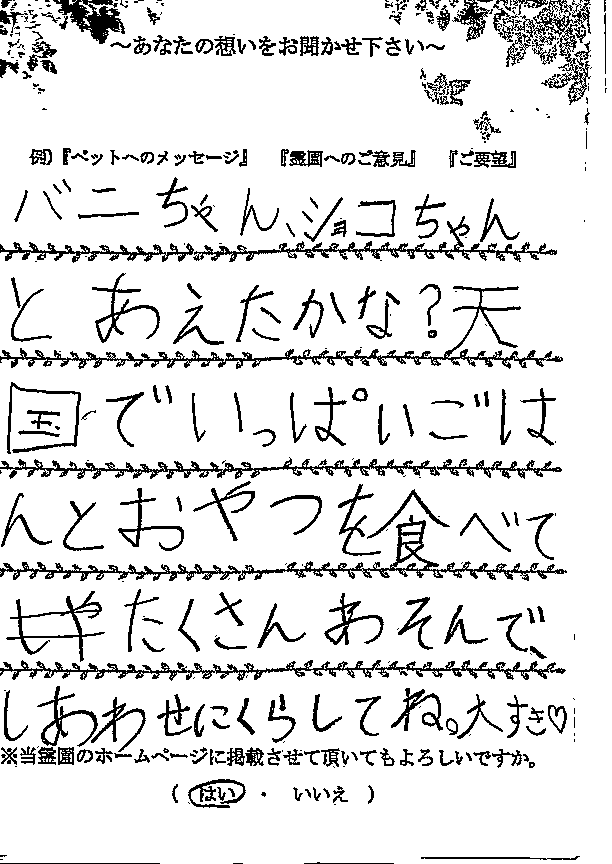 ～あなたの想いをお聞かせ下さい～
例)『ペットへのメッセージ』 『霊園へのご意見』 『ご要望』
バニーちゃん、ショコちゃん
とあえたかな?天
国でいっぱいごは
んとおやつを食べて
たくさんあそんで、
しあわせにくらしてね。大すき♡
※当霊園のホームページに掲載させて頂いてもよろしいですか。
( はい ・ いいえ )